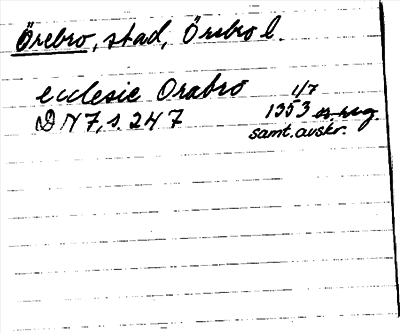 Örebro, stad, Örebro l.
ecclesie Orabro 1/7
DN 7, s. 247 1353
samt. avskr.